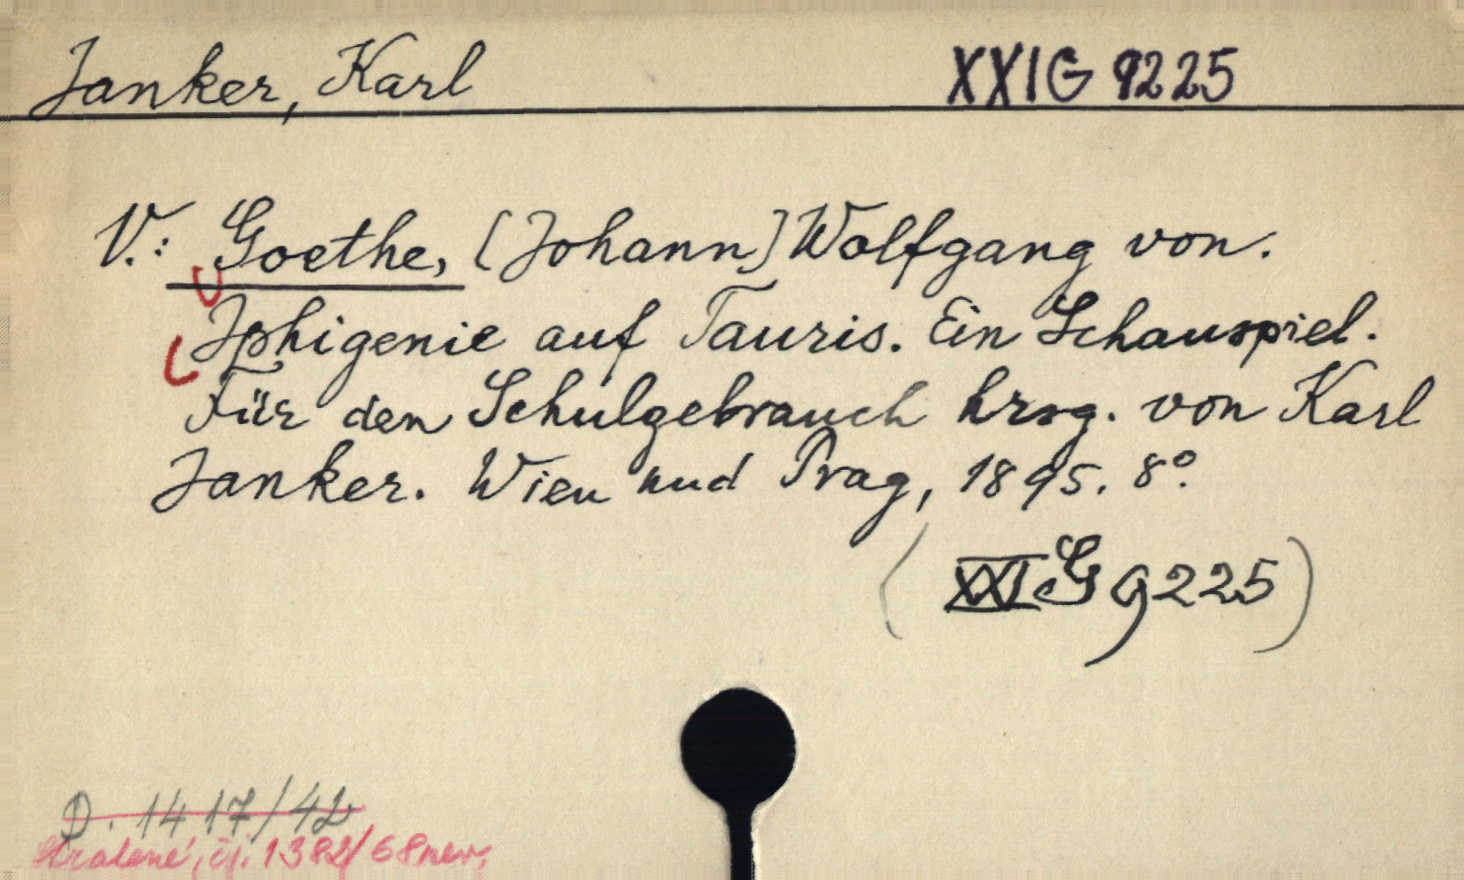 Janker, Karl XXIG 9225
V.: Goethe, [Johann] Wolfgang von.
Iphigenie auf Tauris. Ein Schauspiel.
Für den Schulgebrauch hrsg. von Karl
Janker. Wien und Prag, 1895. 8°.
(XXI G 9225)
D. 1417/42
čj. 1382/68